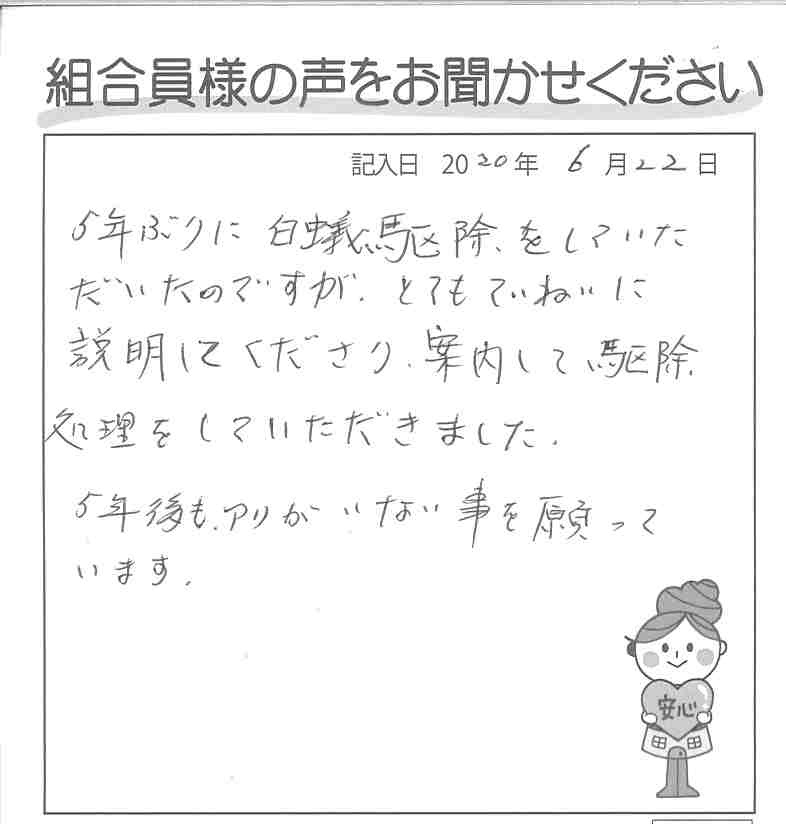 組合員様の声をお聞かせください
記入日 2020年 6月22日
5年ぶりに白蟻駆除をしていた
だいたのですが、とてもていねいに
説明してくださり、案内して駆除
処理をしていただきました。
5年後も、アリがいない事を願って
います。
安心